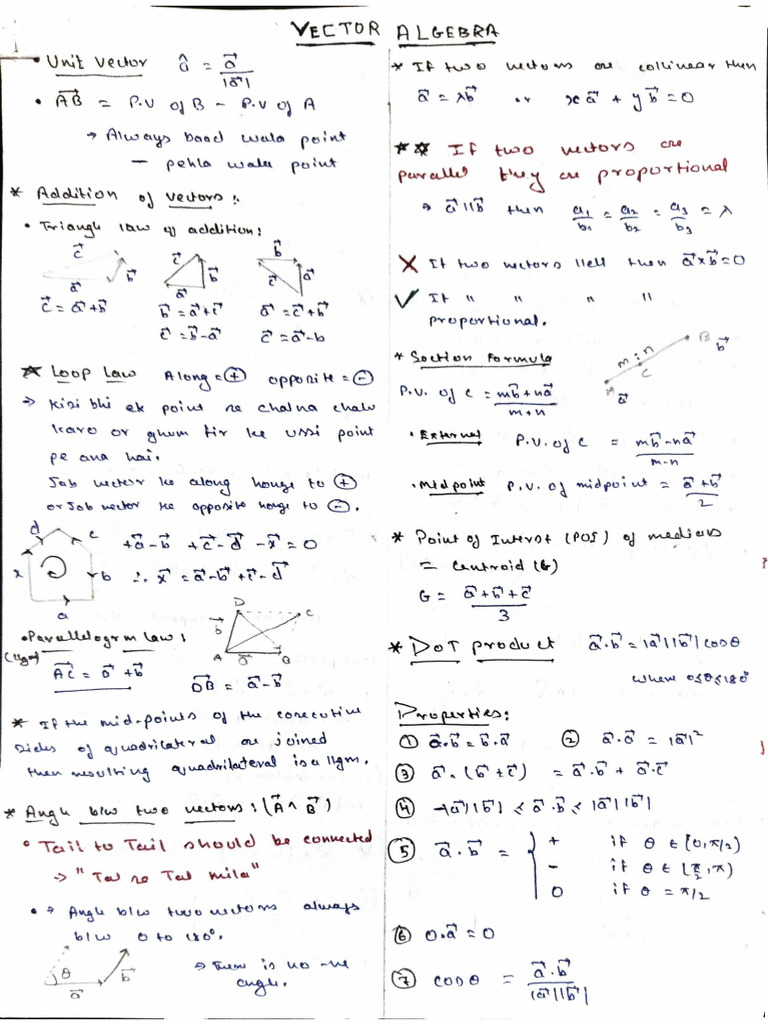 VECTOR ALGEBRA
• Unit vector â = a⃗/|a⃗|
• AB⃗ = P.V of B - P.V of A
→ Always baad wala point
- pehla wala point
* Addition of vectors:.
• Triangle law of addition:
c⃗ a⃗ b⃗
c⃗ b⃗ a⃗
b⃗ c⃗ a⃗
c⃗ = a⃗+b⃗ b⃗ = a⃗+c⃗ a⃗ = c⃗+b⃗
c⃗ = b⃗-a⃗ c⃗ = a⃗-b
* Loop Law Along = + opposite = -
→ Kisi bhi ek point se chalna chalu
karo or ghum fir ke ussi point
pe ana hai.
Jab vector ke along honge to +
or Jab vector ke opposite honge to -.
d c x b a
+a⃗-b⃗ +c⃗-d⃗ -x⃗ = 0
∴ x⃗ = a⃗-b⃗+c⃗-d⃗
• Parallelogrm law:
(llgm)
D C b⃗ A a⃗ B
AC⃗ = a⃗+b⃗
DB⃗ = a⃗-b⃗
* If the mid-points of the consecutive
sides of quadrilateral are joined
then resulting quadrilateral is a llgm.
* Angle b/w two vectors: (A⃗ ∧ B⃗)
• Tail to Tail should be connected
→ "Tal se Tal mila"
• → Angle b/w two vectors always
b/w 0 to 180°.
θ a⃗ b⃗
→ There is no -ve
angle.
* If two vectors are collinear then
a⃗ = λb⃗ or xa⃗ + yb⃗ = 0
** If two vectors are
parallel they are proportional
→ a⃗ || b⃗ then a₁/b₁ = a₂/b₂ = a₃/b₃ = λ
✗ If two vectors llell then a⃗×b⃗=0
✓ If " " " "
proportional.
* Section Formula
m : n A C B a⃗ b⃗
P.V. of c = mb⃗+na⃗/m+n
• External P.V. of c = mb⃗-na⃗/m-n
• Midpoint P.V. of midpoint = a⃗+b⃗/2
* Point of Interst (POI) of medians
= centroid (G)
G = a⃗+b⃗+c⃗/3
* DOT product a⃗.b⃗ = |a⃗||b⃗|cosθ
where 0≤θ≤180°
Properties:
① a⃗.b⃗ = b⃗.a⃗ ② a⃗.a⃗ = |a⃗|²
③ a⃗.(b⃗+c⃗) = a⃗.b⃗ + a⃗.c⃗
④ -|a⃗||b⃗| ≤ a⃗.b⃗ ≤ |a⃗||b⃗|
⑤ a⃗.b⃗ = { + if θ ∈ [0,π/2)
- if θ ∈ (π/2,π)
0 if θ = π/2
⑥ 0.a⃗ = 0
⑦ cosθ = a⃗.b⃗/|a⃗||b⃗|